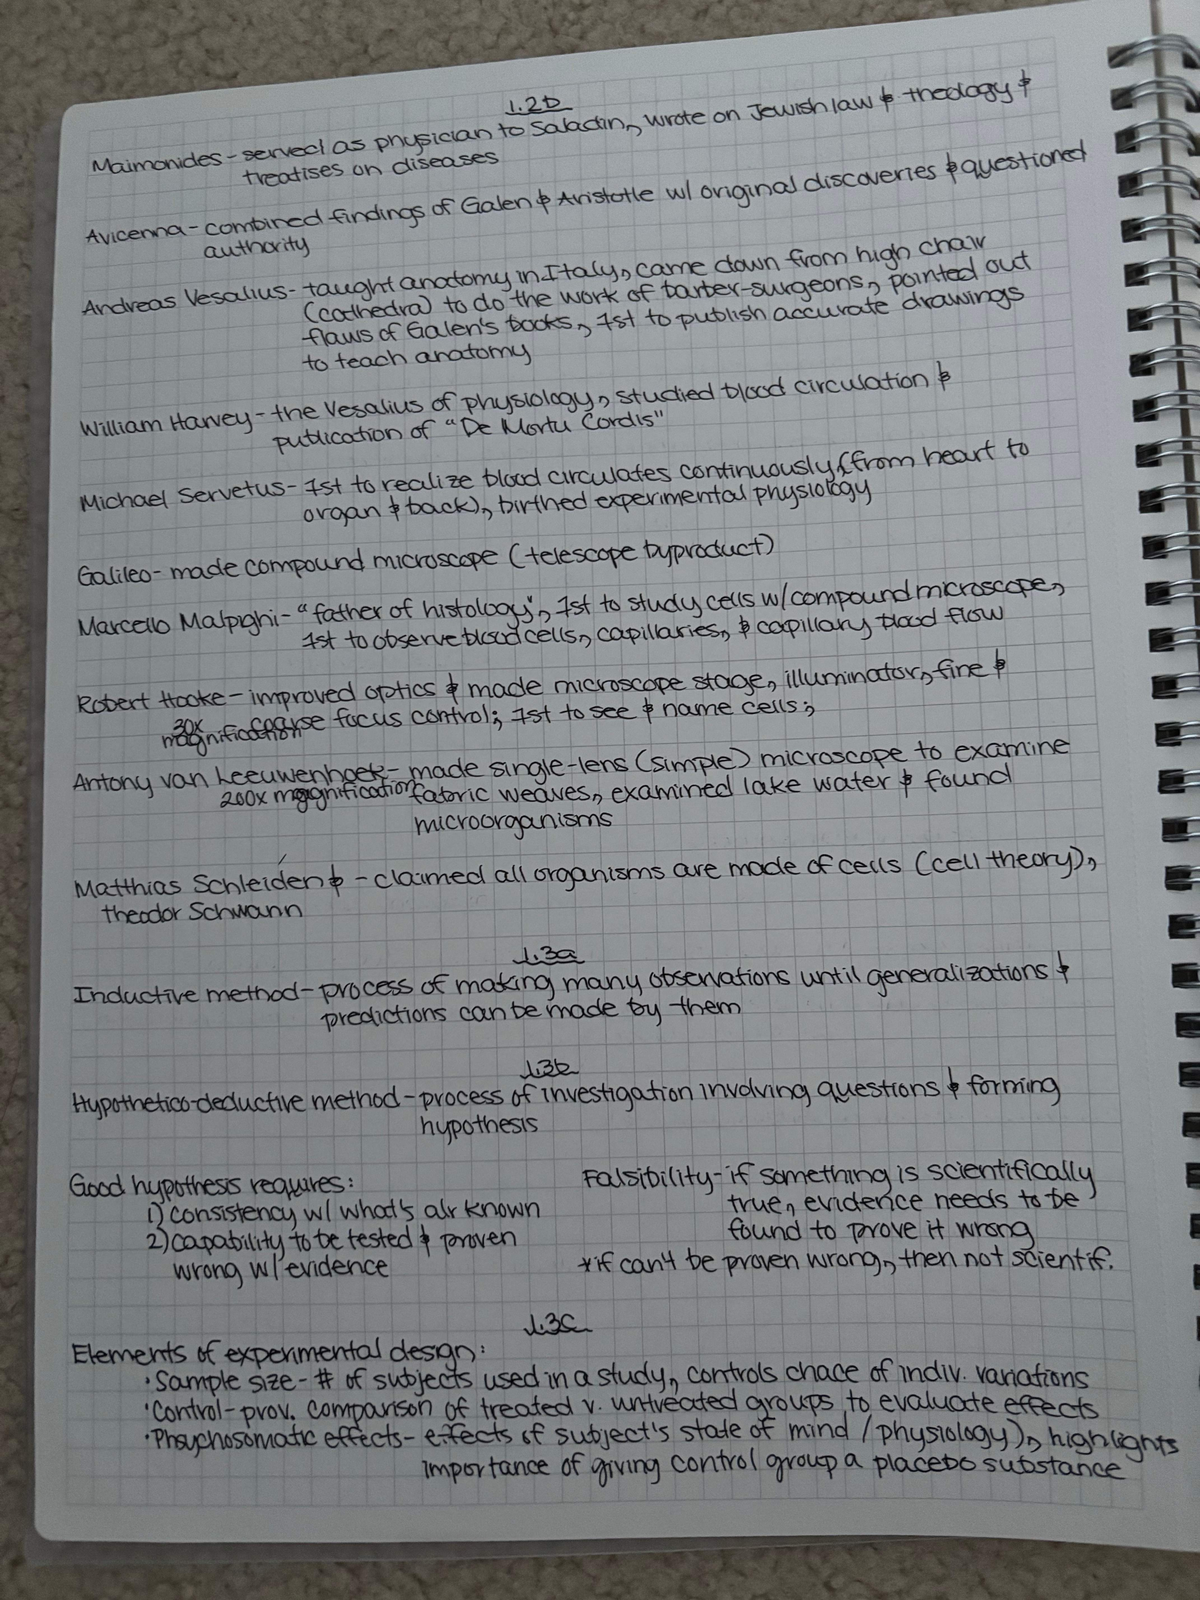 1.2b
Maimonides - served as physician to Saladin, wrote on Jewish law & theology &
treatises on diseases
Avicenna - combined findings of Galen & Aristotle w/ original discoveries & questioned
authority
Andreas Vesalius - taught anatomy in Italy, came down from high chair
(cathedra) to do the work of barber-surgeons, pointed out
flaws of Galen's books, 1st to publish accurate drawings
to teach anatomy
William Harvey - the Vesalius of physiology, studied blood circulation &
publication of "De Mortu Cordis"
Michael Servetus - 1st to realize blood circulates continuously (from heart to
organ & back), birthed experimental physiology
Galileo - made compound microscope (telescope byproduct)
Marcello Malpighi - "father of histology", 1st to study cells w/ compound microscope,
1st to observe blood cells, capillaries, & capillary blood flow
Robert Hooke - improved optics & made microscope stage, illuminator, fine &
coarse focus control; 1st to see & name cells;
30x
magnification
Antony van Leeuwenhoek - made single-lens (simple) microscope to examine
200x magnification fabric weaves, examined lake water & found
microorganisms
Matthias Schleiden & - claimed all organisms are made of cells (cell theory),
theodor Schwann
1.3a
Inductive method - process of making many observations until generalizations &
predictions can be made by them
1.3b
Hypothetico-deductive method - process of investigation involving questions & forming
hypothesis
Good hypothesis requires:
1) consistency w/ what's alr known
2) capability to be tested & proven
wrong w/ evidence
Falsibility - if something is scientifically
true, evidence needs to be
found to prove it wrong
*if can't be proven wrong, then not scientif.
1.3c
Elements of experimental design:
·Sample size - # of subjects used in a study, controls chace of indiv. variations
·Control - prov. comparison of treated v. untreated groups to evaluate effects
·Phsychosomatic effects - effects of subject's state of mind (physiology), highlights
importance of giving control group a placebo substance